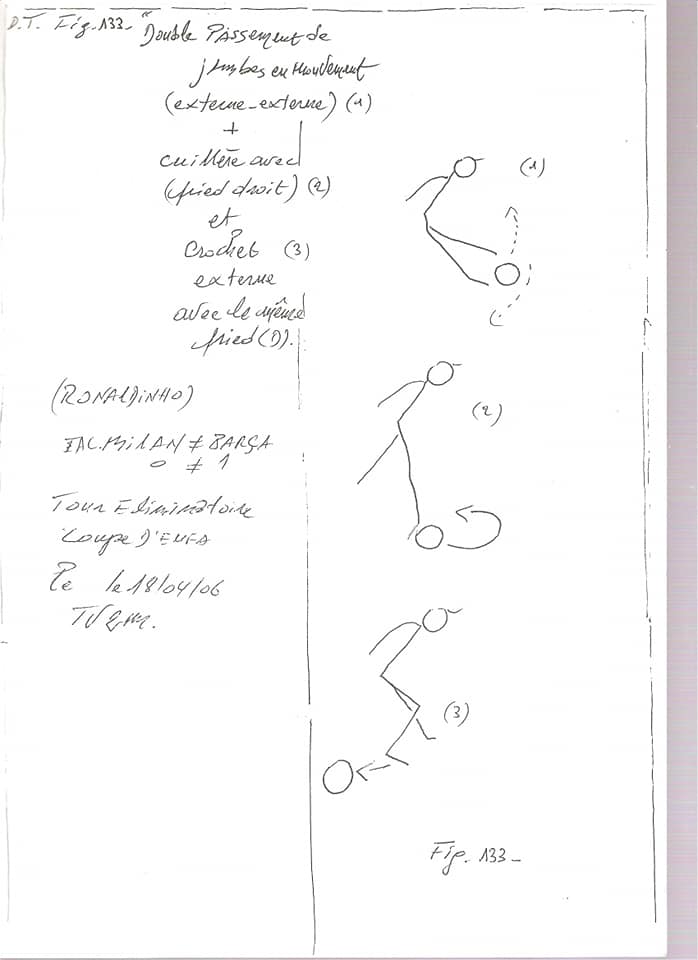 D.T. Fig.133- "Double Passement de
jambes en mouvement
(externe-externe) (1)
+
cuillère avec
(pied droit) (2)
et
Crochet (3)
externe
avec le même
pied (D).
(RONALDINHO)
MILAN ≠ BARÇA
0 ≠ 1
Tour Eliminatoire
Coupe D'EUFA
le 18/04/06
TV 2.M.
(1)
(2)
(3)
Fig. 133-